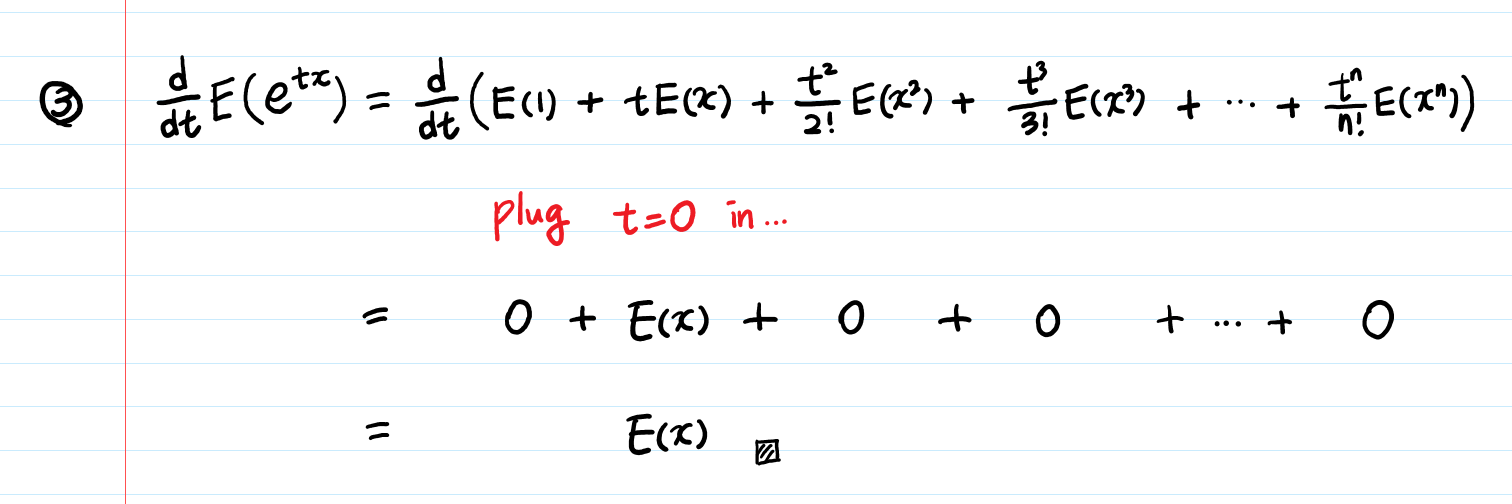 ③ d/dt E(e^{tx}) = d/dt (E(1) + tE(x) + t²/2! E(x²) + t³/3! E(x³) + ⋯ + tⁿ/n! E(xⁿ))
plug t=0 in...
= 0 + E(x) + 0 + 0 + ⋯ + 0
= E(x) ▨